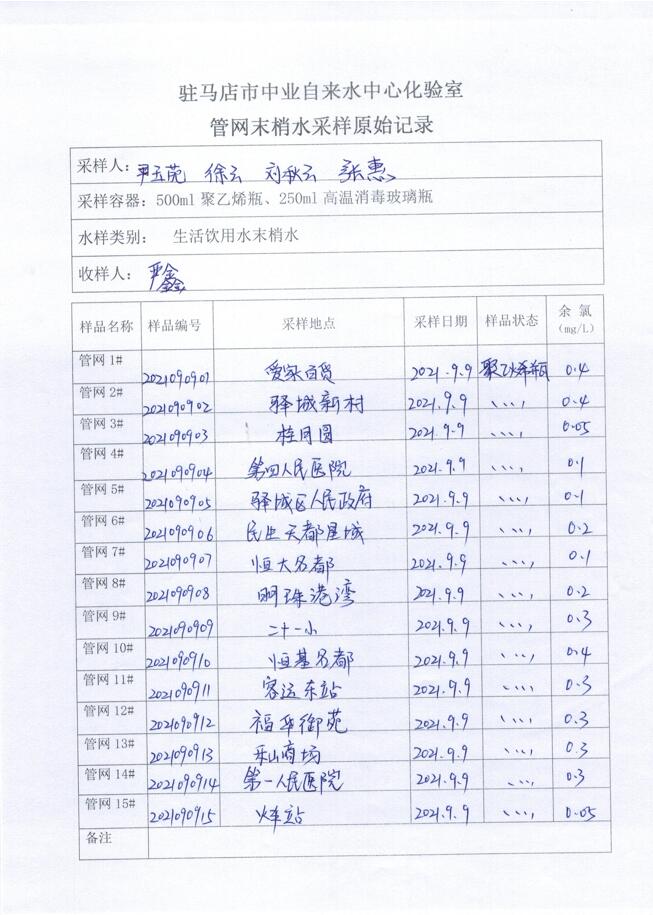 驻马店市中业自来水中心化验室
管网末梢水采样原始记录
采样人：尹玉苑 徐云 刘秋云 张惠
采样容器：500ml 聚乙烯瓶、250ml 高温消毒玻璃瓶
水样类别： 生活饮用水末梢水
收样人：严鑫
样品名称 样品编号 采样地点 采样日期 样品状态 余氯（mg/L）
管网 1# 2021090901 爱家百货 2021.9.9 聚乙烯瓶 0.4
管网 2# 2021090902 驿城新村 2021.9.9 、、、， 0.4
管网 3# 2021090903 桂月圆 2021.9.9 、、、， 0.05
管网 4# 2021090904 第四人民医院 2021.9.9 、、、， 0.1
管网 5# 2021090905 驿城区人民政府 2021.9.9 、、、， 0.1
管网 6# 2021090906 民生天都星城 2021.9.9 、、、， 0.2
管网 7# 2021090907 恒大名都 2021.9.9 、、、， 0.1
管网 8# 2021090908 明珠港湾 2021.9.9 、、、， 0.2
管网 9# 2021090909 二十一小 2021.9.9 、、、， 0.3
管网 10# 2021090910 恒基名都 2021.9.9 、、、， 0.4
管网 11# 2021090911 客运东站 2021.9.9 、、、， 0.3
管网 12# 2021090912 福华御苑 2021.9.9 、、、， 0.3
管网 13# 2021090913 乐山商场 2021.9.9 、、、， 0.3
管网 14# 2021090914 第一人民医院 2021.9.9 、、、， 0.3
管网 15# 2021090915 火车站 2021.9.9 、、、， 0.05
备注